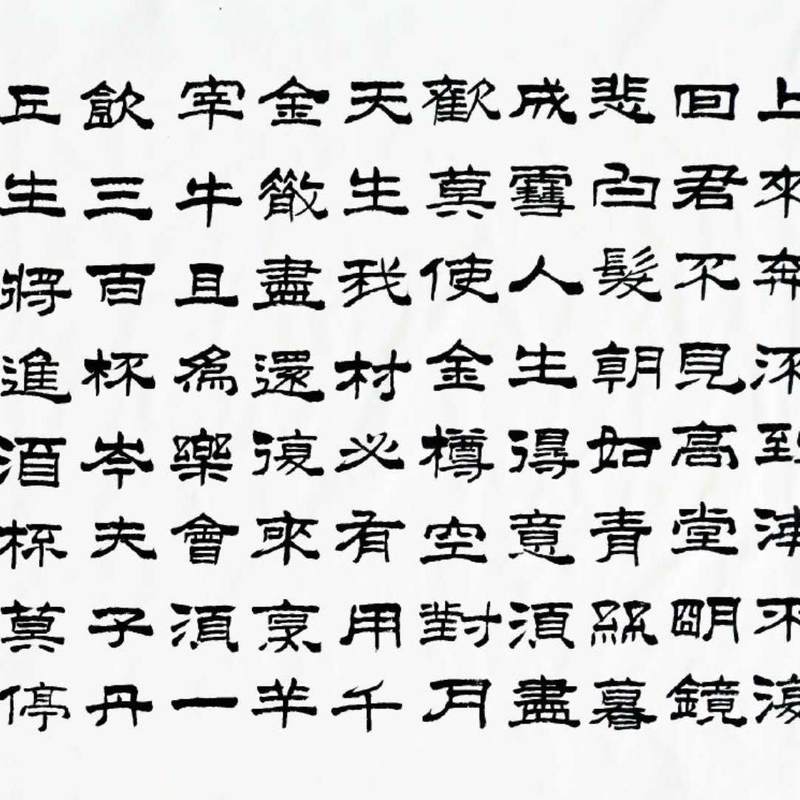 上來奔流到海不復
回君不見高堂明鏡
悲白髮朝如青絲暮
成雪人生得意須盡
歡莫使金樽空對月
天生我材必有用千
金散盡還復來烹羊
宰牛且為樂會須一
飲三百杯岑夫子丹
丘生將進酒杯莫停